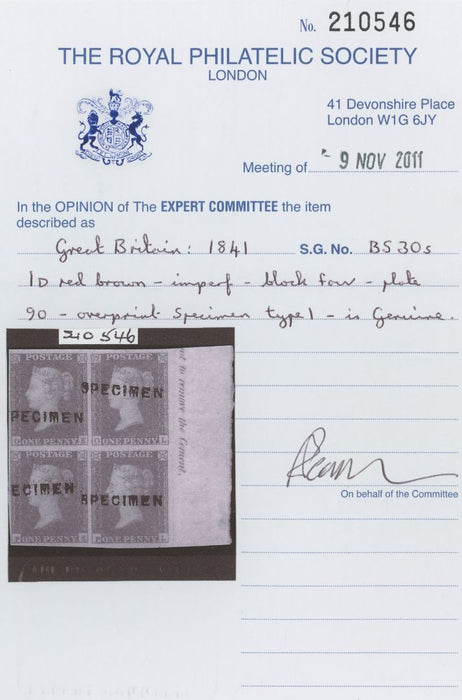 No. 210546
THE ROYAL PHILATELIC SOCIETY
LONDON
41 Devonshire Place
London W1G 6JY
Meeting of 9 NOV 2011
In the OPINION of The EXPERT COMMITTEE the item
described as
Great Britain: 1841 S.G. No. BS30s
1D red brown - imperf - block four - plate
90 - overprint Specimen type 1 - is Genuine.
210546
POSTAGE POSTAGE
SPECIMEN
PECIMEN
ONE PENNY ONE PENNY L
to remove the Cement.
POSTAGE POSTAGE
ECIMEN SPECIMEN
ONE PENNY ONE PENNY L
On behalf of the Committee